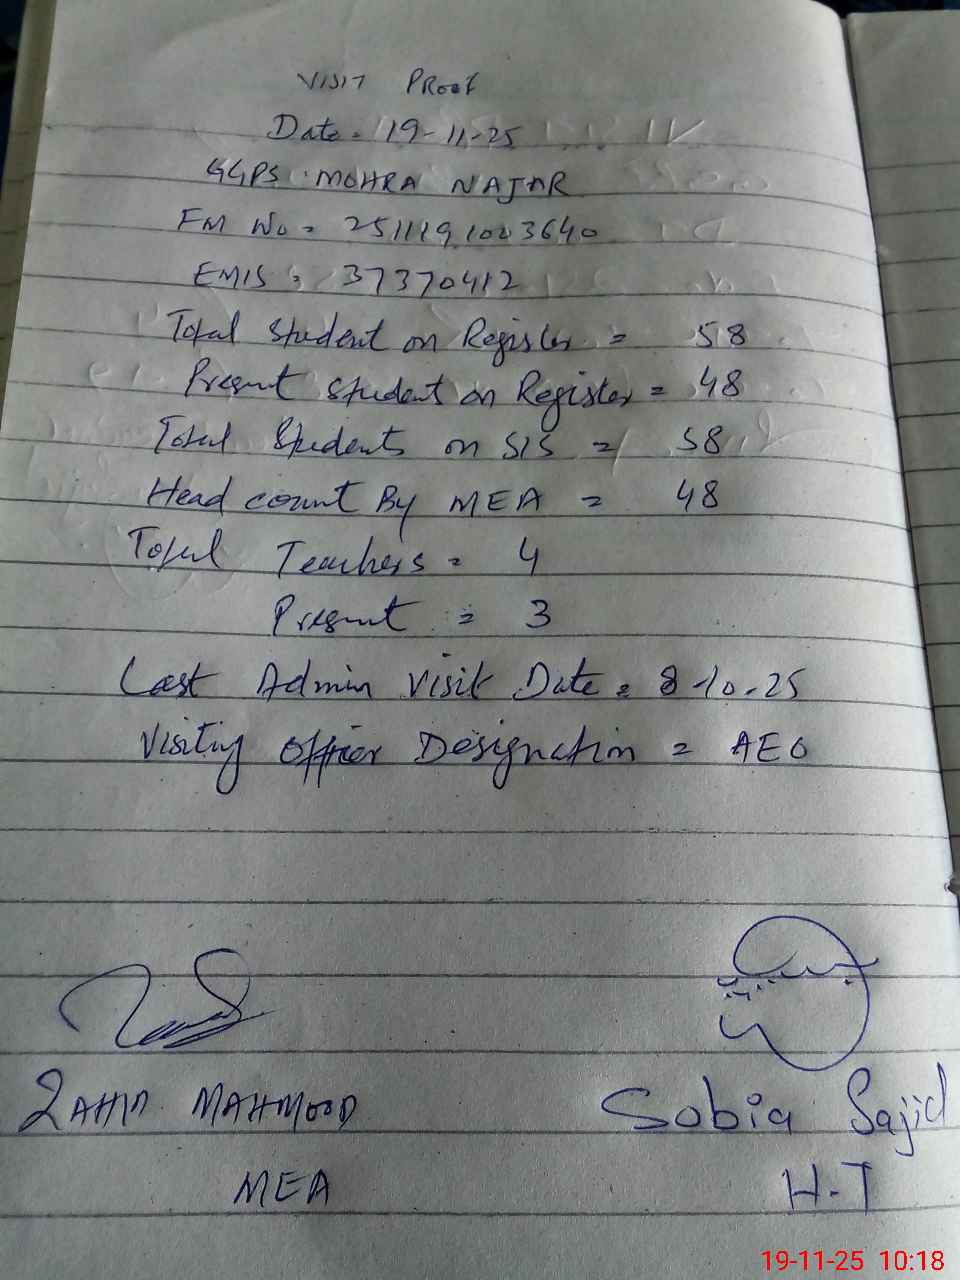 VISIT PRoof
Date = 19-11-25
GGPS MOHRA NAJAR
FM No = 2511191003640
EMIS = 37370412
Total Student on Register = 58
Present Student on Register = 48
Total Students on SIS = 58
Head count By MEA = 48
Total Teachers = 4
Present = 3
Last Admin Visit Date = 8-10-25
Visiting Officer Designation = AEO
ZAHID MAHMOOD
Sobia Sajid
MEA
H-T
19-11-25 10:18